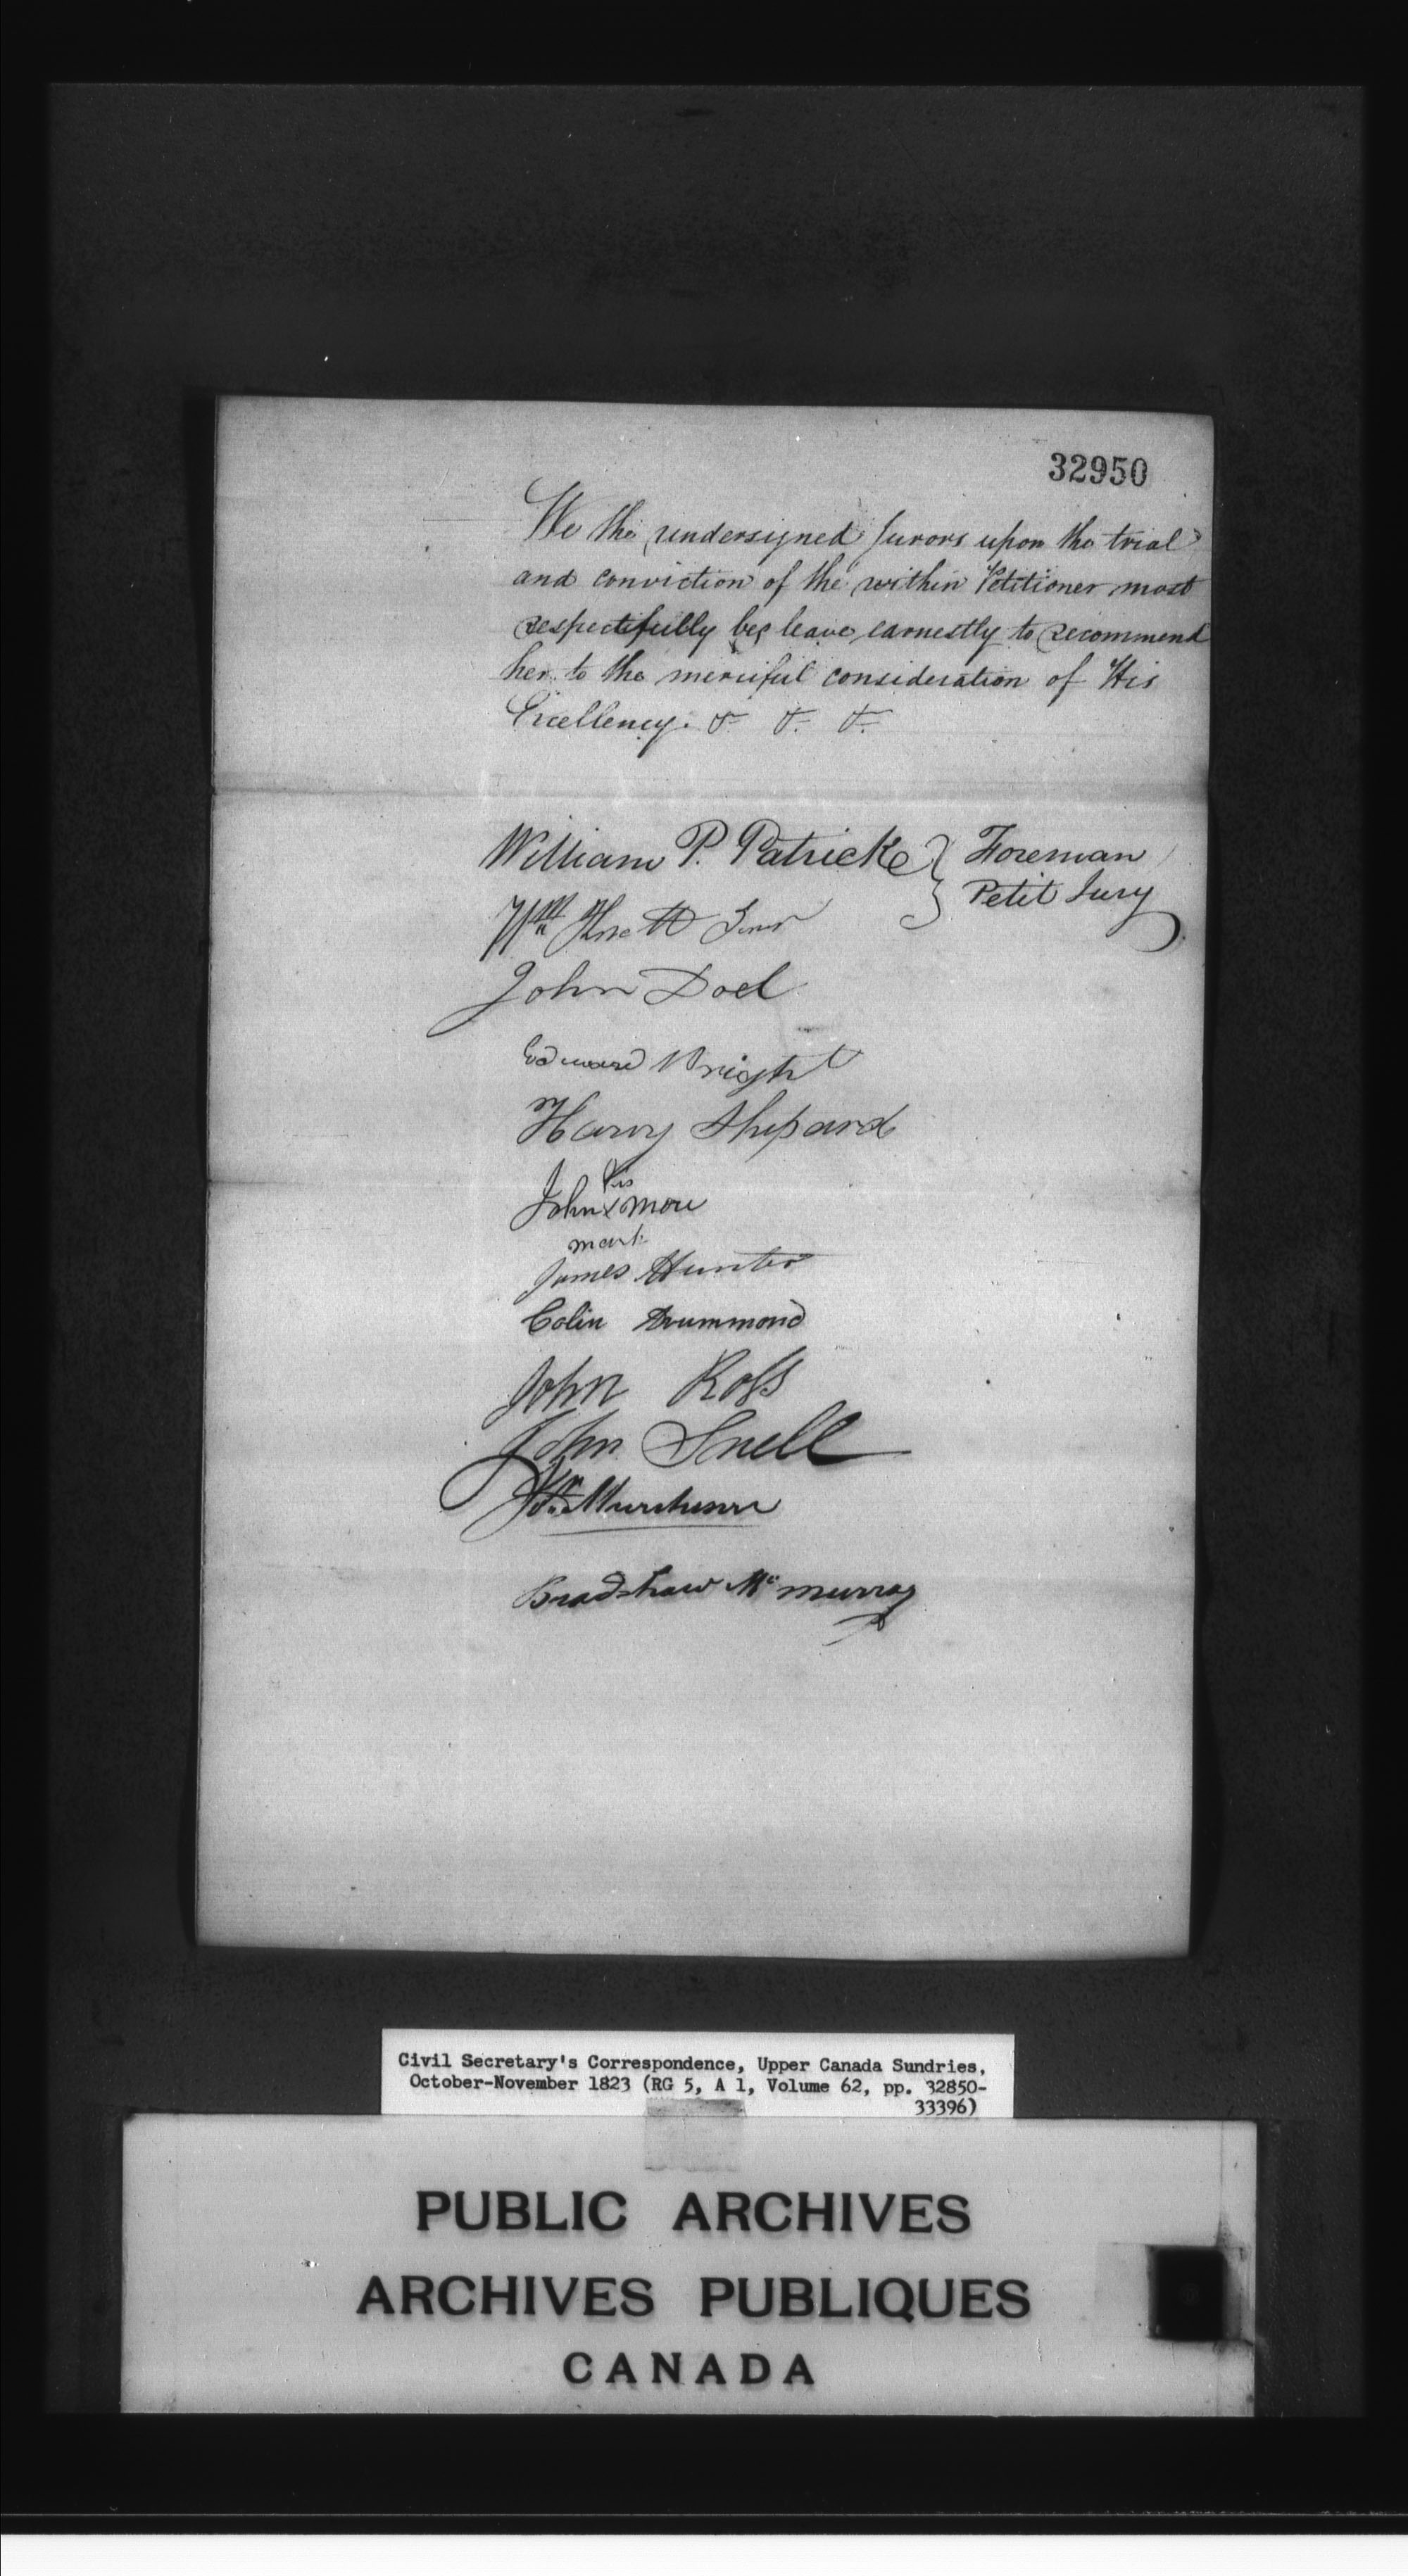 32950
We the undersigned Jurors upon the trial
and conviction of the within Petitioner most
respectifully beg leave earnestly to recommend
her to the merciful consideration of His
Excellency. & &. &.
William P. Patrick } Foreman
Petit Jury
Wm Knott Senr
John Doel
Edward Wright
Harvy Shepard
his
John x More
mark
James Hunter
Colin Drummond
John Ross
John Snell
Jn. Murchison
Bradshaw Mc murray
Civil Secretary's Correspondence, Upper Canada Sundries,
October-November 1823 (RG 5, A 1, Volume 62, pp. 32850-
33396)
PUBLIC ARCHIVES
ARCHIVES PUBLIQUES
CANADA